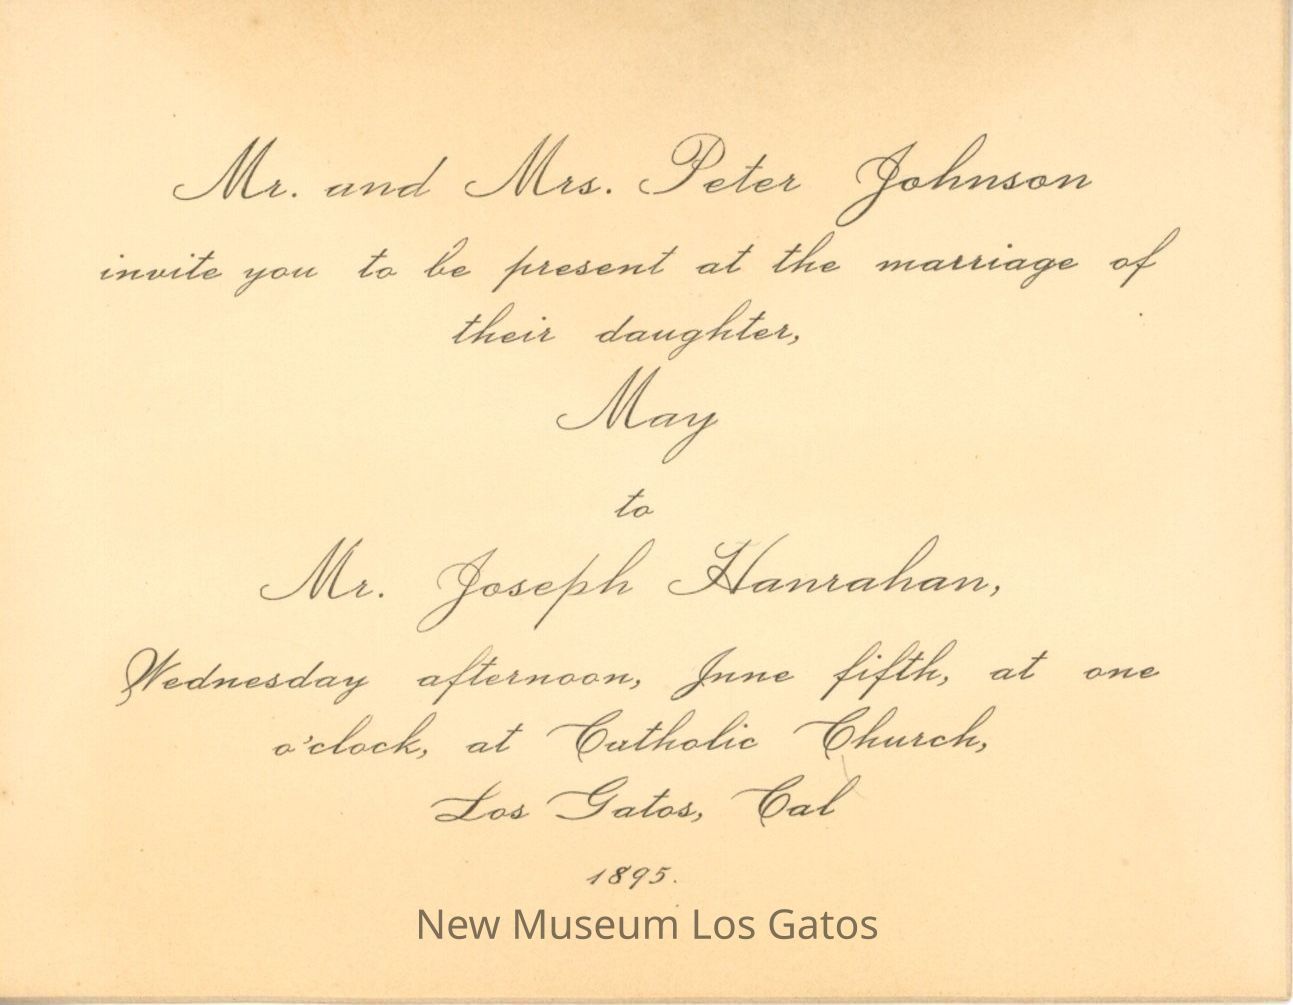 Mr. and Mrs. Peter Johnson
invite you to be present at the marriage of
their daughter,
May
to
Mr. Joseph Hanrahan,
Wednesday afternoon, June fifth, at one
o'clock, at Catholic Church,
Los Gatos, Cal
1895.
New Museum Los Gatos